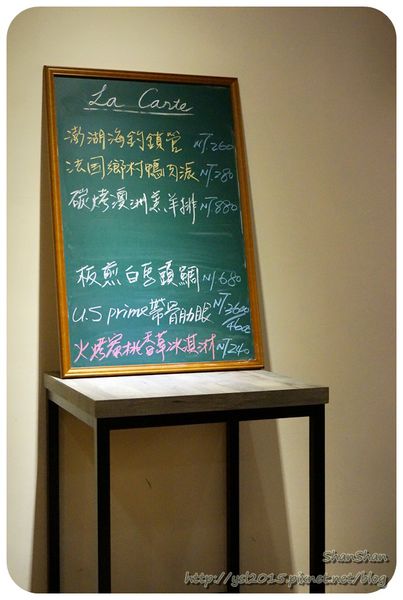 La Carte
澎湖海釣鎖管 NT.260
法国鄉村鴨肉派 NT.280
碳烤澳洲羔羊排 NT.880
板煎白馬頭鯛 NT.680
U.S prime帶骨肋眼 NT.3600/46oz
火烤蜜桃香草冰淇淋 NT.240
ShanShan
http://ysl2015.pixnet.net/blog